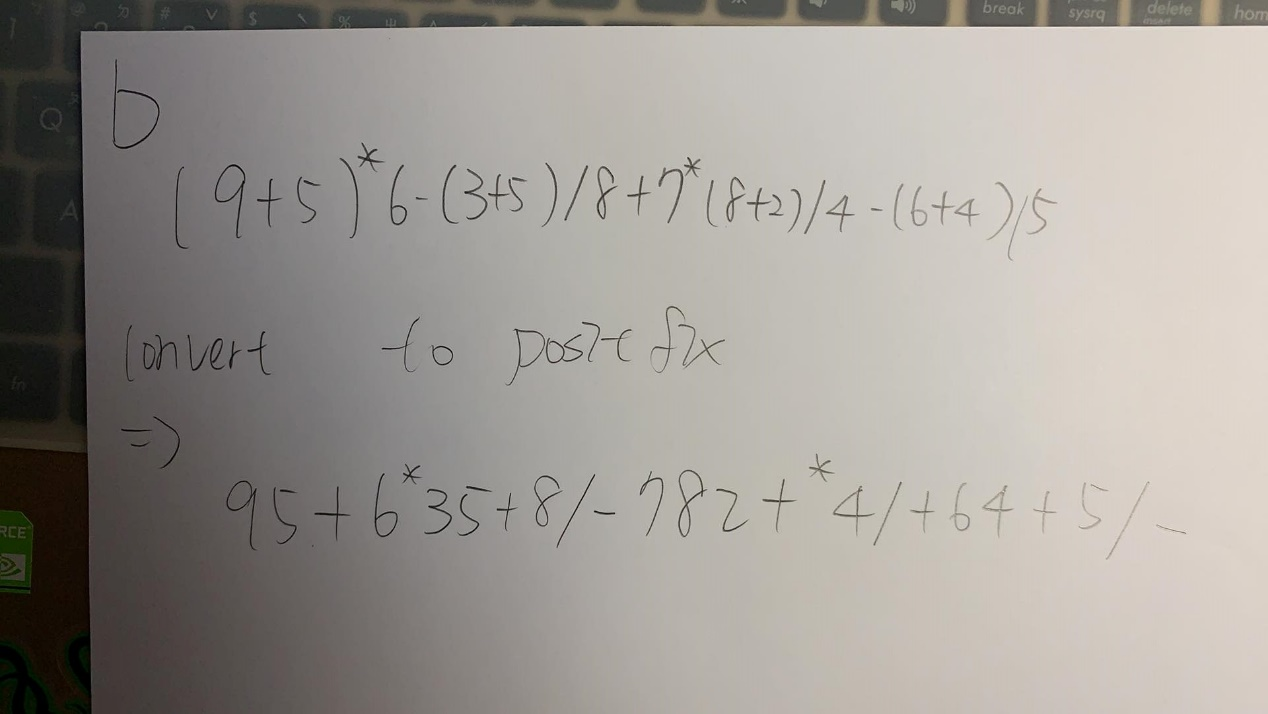 break sysrq delete hom
insert
Q
A
fn
RCE
b
(9+5)*6-(3+5)/8+7*(8+2)/4-(6+4)/5
convert to postfix
=>
95+6*35+8/-782+*4/+64+5/-